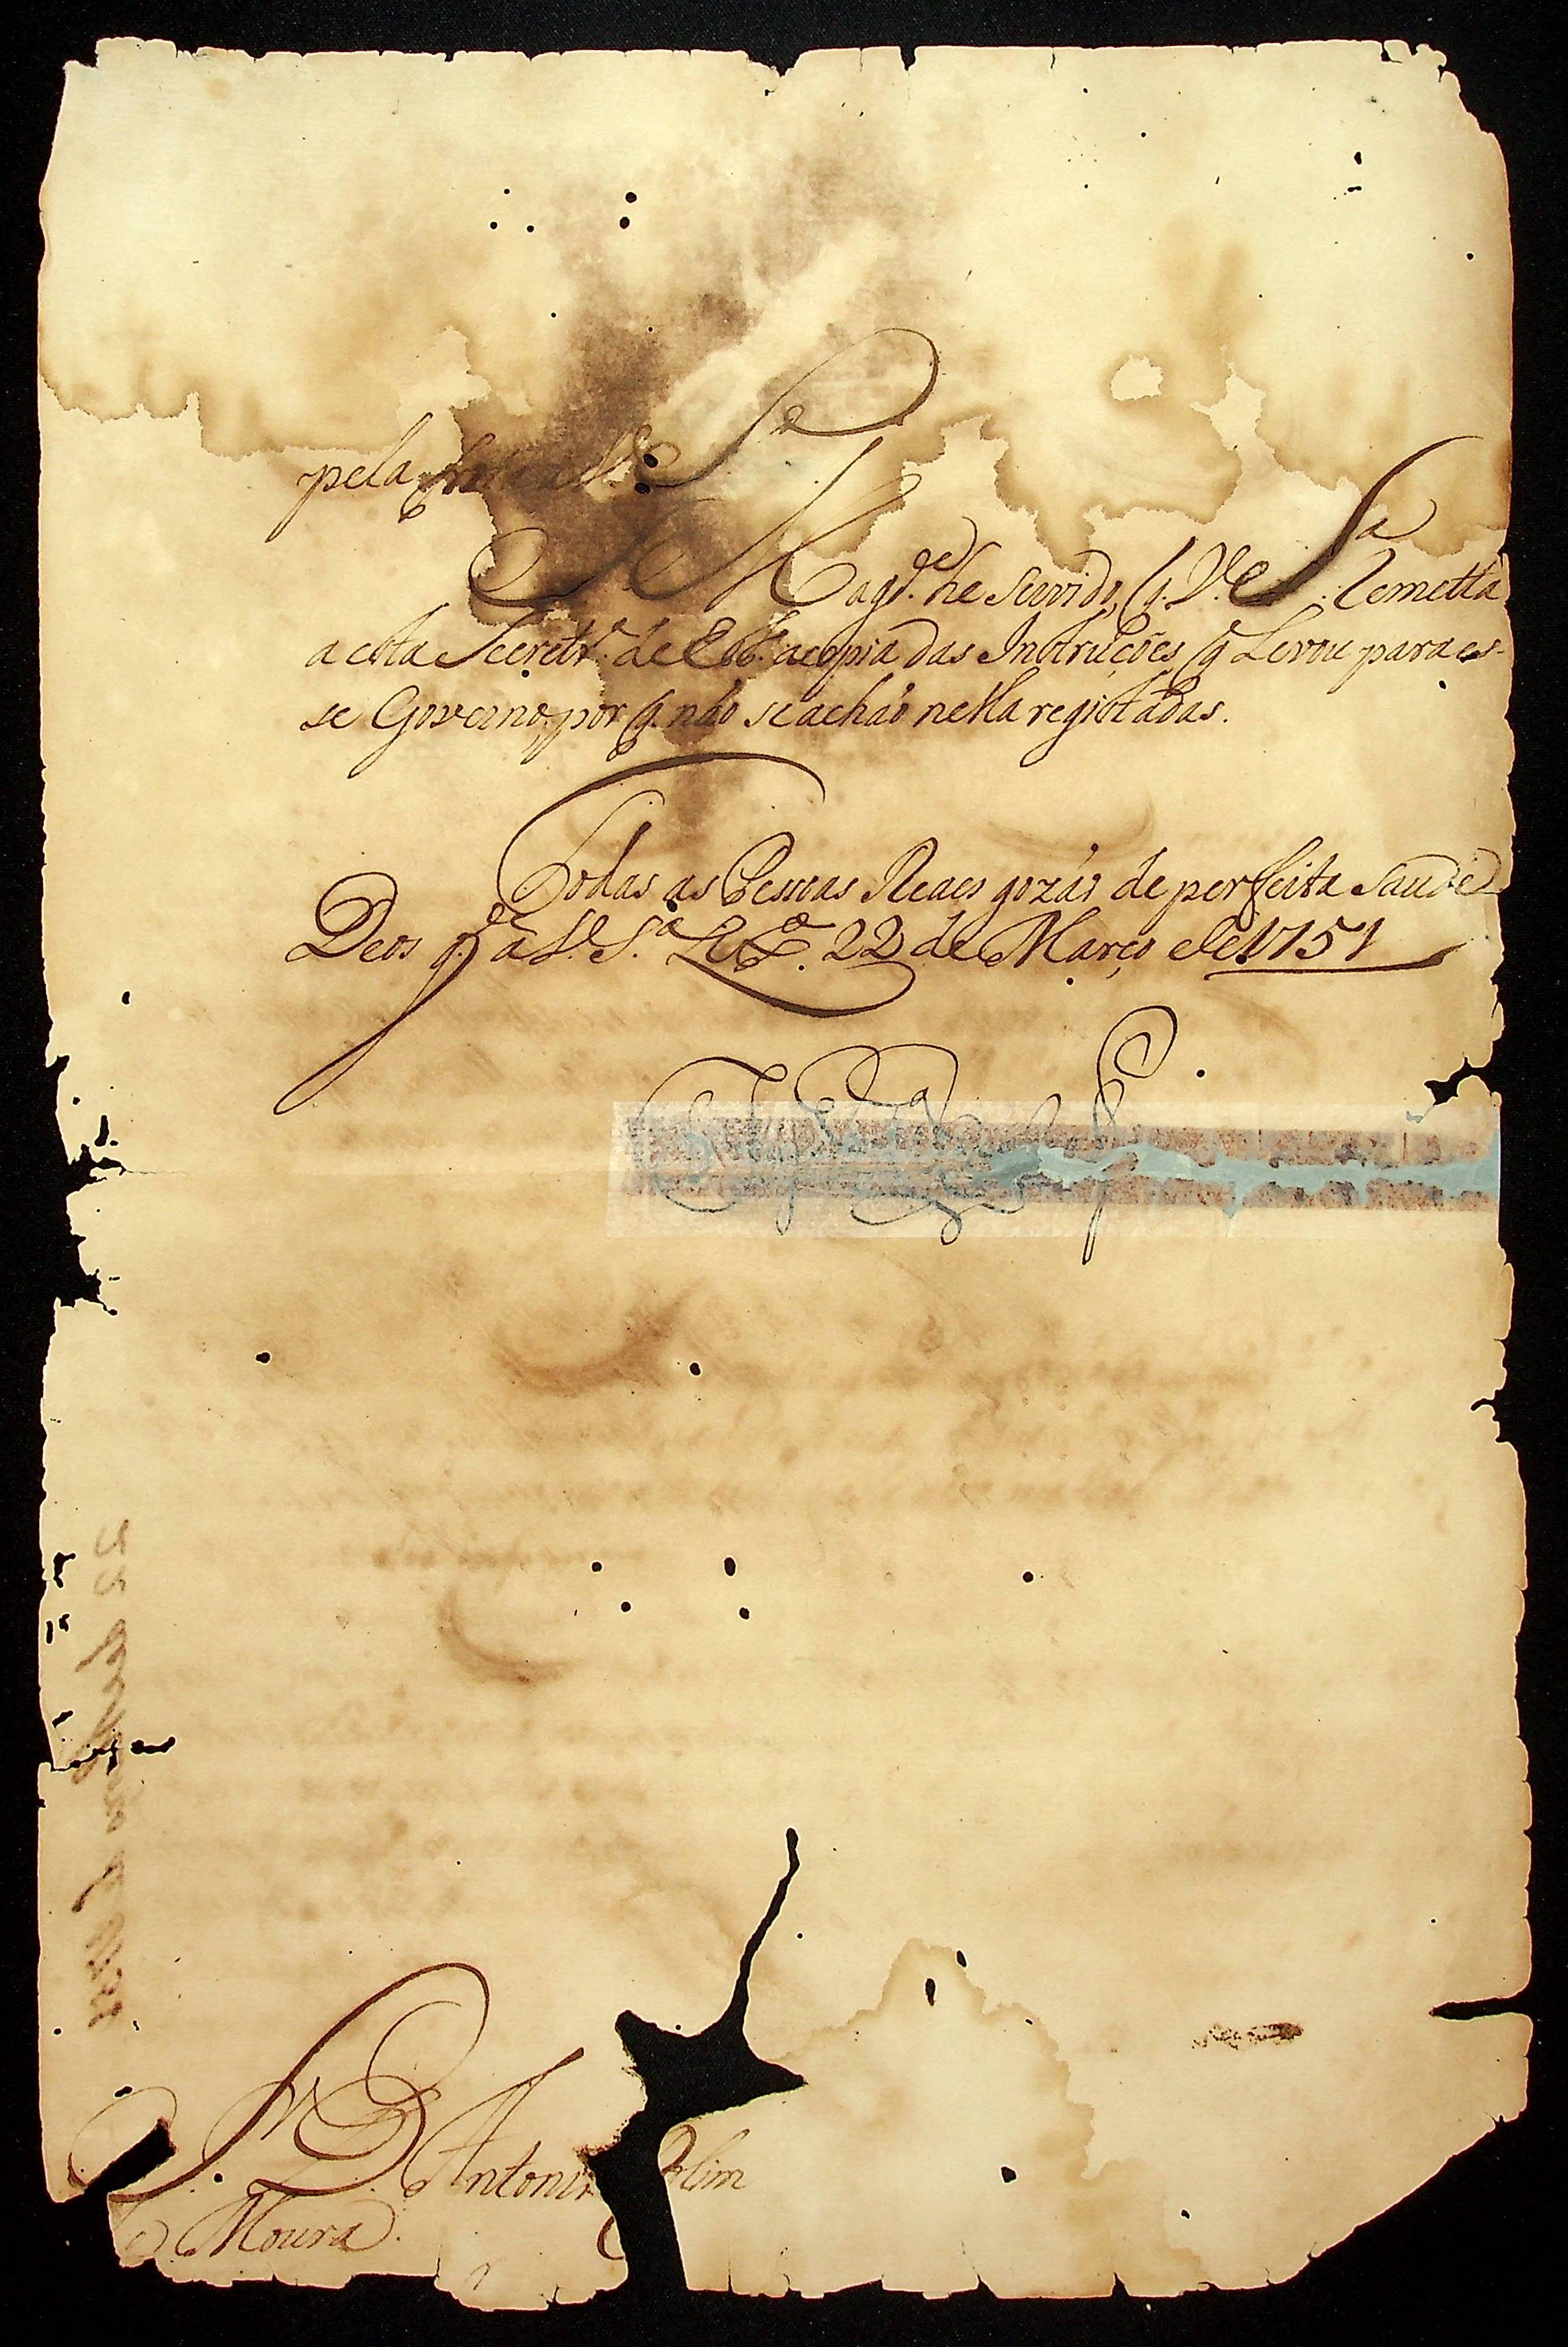 pela
S. Mag.de he Servido, q. V. S.a Remetta
a esta Secretr.a de Est.o a copia das Instruções q Levou para es-
se Governo, por q. não se achão nella registadas.
Todas as Pessoas Reaes gozão de perfeita Saude
Deos g.de a V. S.a Lx.a 22 de Março de 1751
S.r D. Antonio Rolim
de Moura.